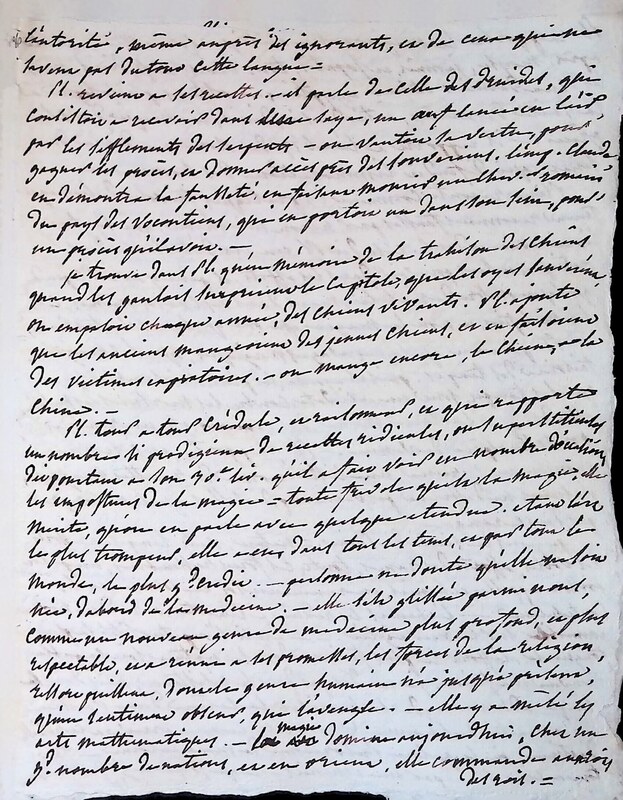 l'autorité, même auprès des ignorants, et de ceux qui ne
savent pas du tout cette langue =
Pl. revient a ses recettes. - il parle de celle des druides, qui
consistoit a recevoir dans une saye, un œuf lancé en l'air
par les sifflements des serpents - on vantoit sa vertu, pour
gagner les procès, et donner accès près des souverains. l'emp. Claude
en démontra la fausseté, en faisant mourir un chev. romain
du pays des vocontiens, qui en portoit un dans son sein, pour
un procès qu'il avoit. -
je trouve dans Pl. qu'en mémoire de la trahison des chiens
quand les gaulois surprirent le Capitole, que les oyes sauvèrent,
on empaloit chaque année, des chiens vivants. Pl. ajoute
que les anciens mangeoient des jeunes chiens, et en faisoient
des victimes expiatoires. - on mange encore, le chien, a la
Chine. -
Pl. tour a tour crédule, et raisonnant, et qui rapporte
un nombre si prodigieux de recettes ridicules, ou superstitieuses
dit pourtant a son 30.e liv. qu'il a fait voir en nombre d'occasions
les impostures de la magie = toute frivole qu'est la magie, elle
mérite, qu'on en parle avec quelque étendue. étant l'art
le plus trompeur, elle a eu, dans tous les tems, et par tout le
monde, le plus g.d crédit. - personne ne doute qu'elle ne soit
née, d'abord de la medecine. - elle s'est glissée parmi nous,
comme un nouveau genre de medecine plus profond, et plus
respectable, et a réuni a ses promesses, les forces de la religion,
ressort puissant, dont le genre humain n'a jusqu'a présent,
qu'un sentiment obscur, qui l'aveugle. - elle y a mêlé les
arts mathematiques. - la magie domine aujourdhui, chez un
g.d nombre de nations, et en orient, elle commande aux rois
des rois. =